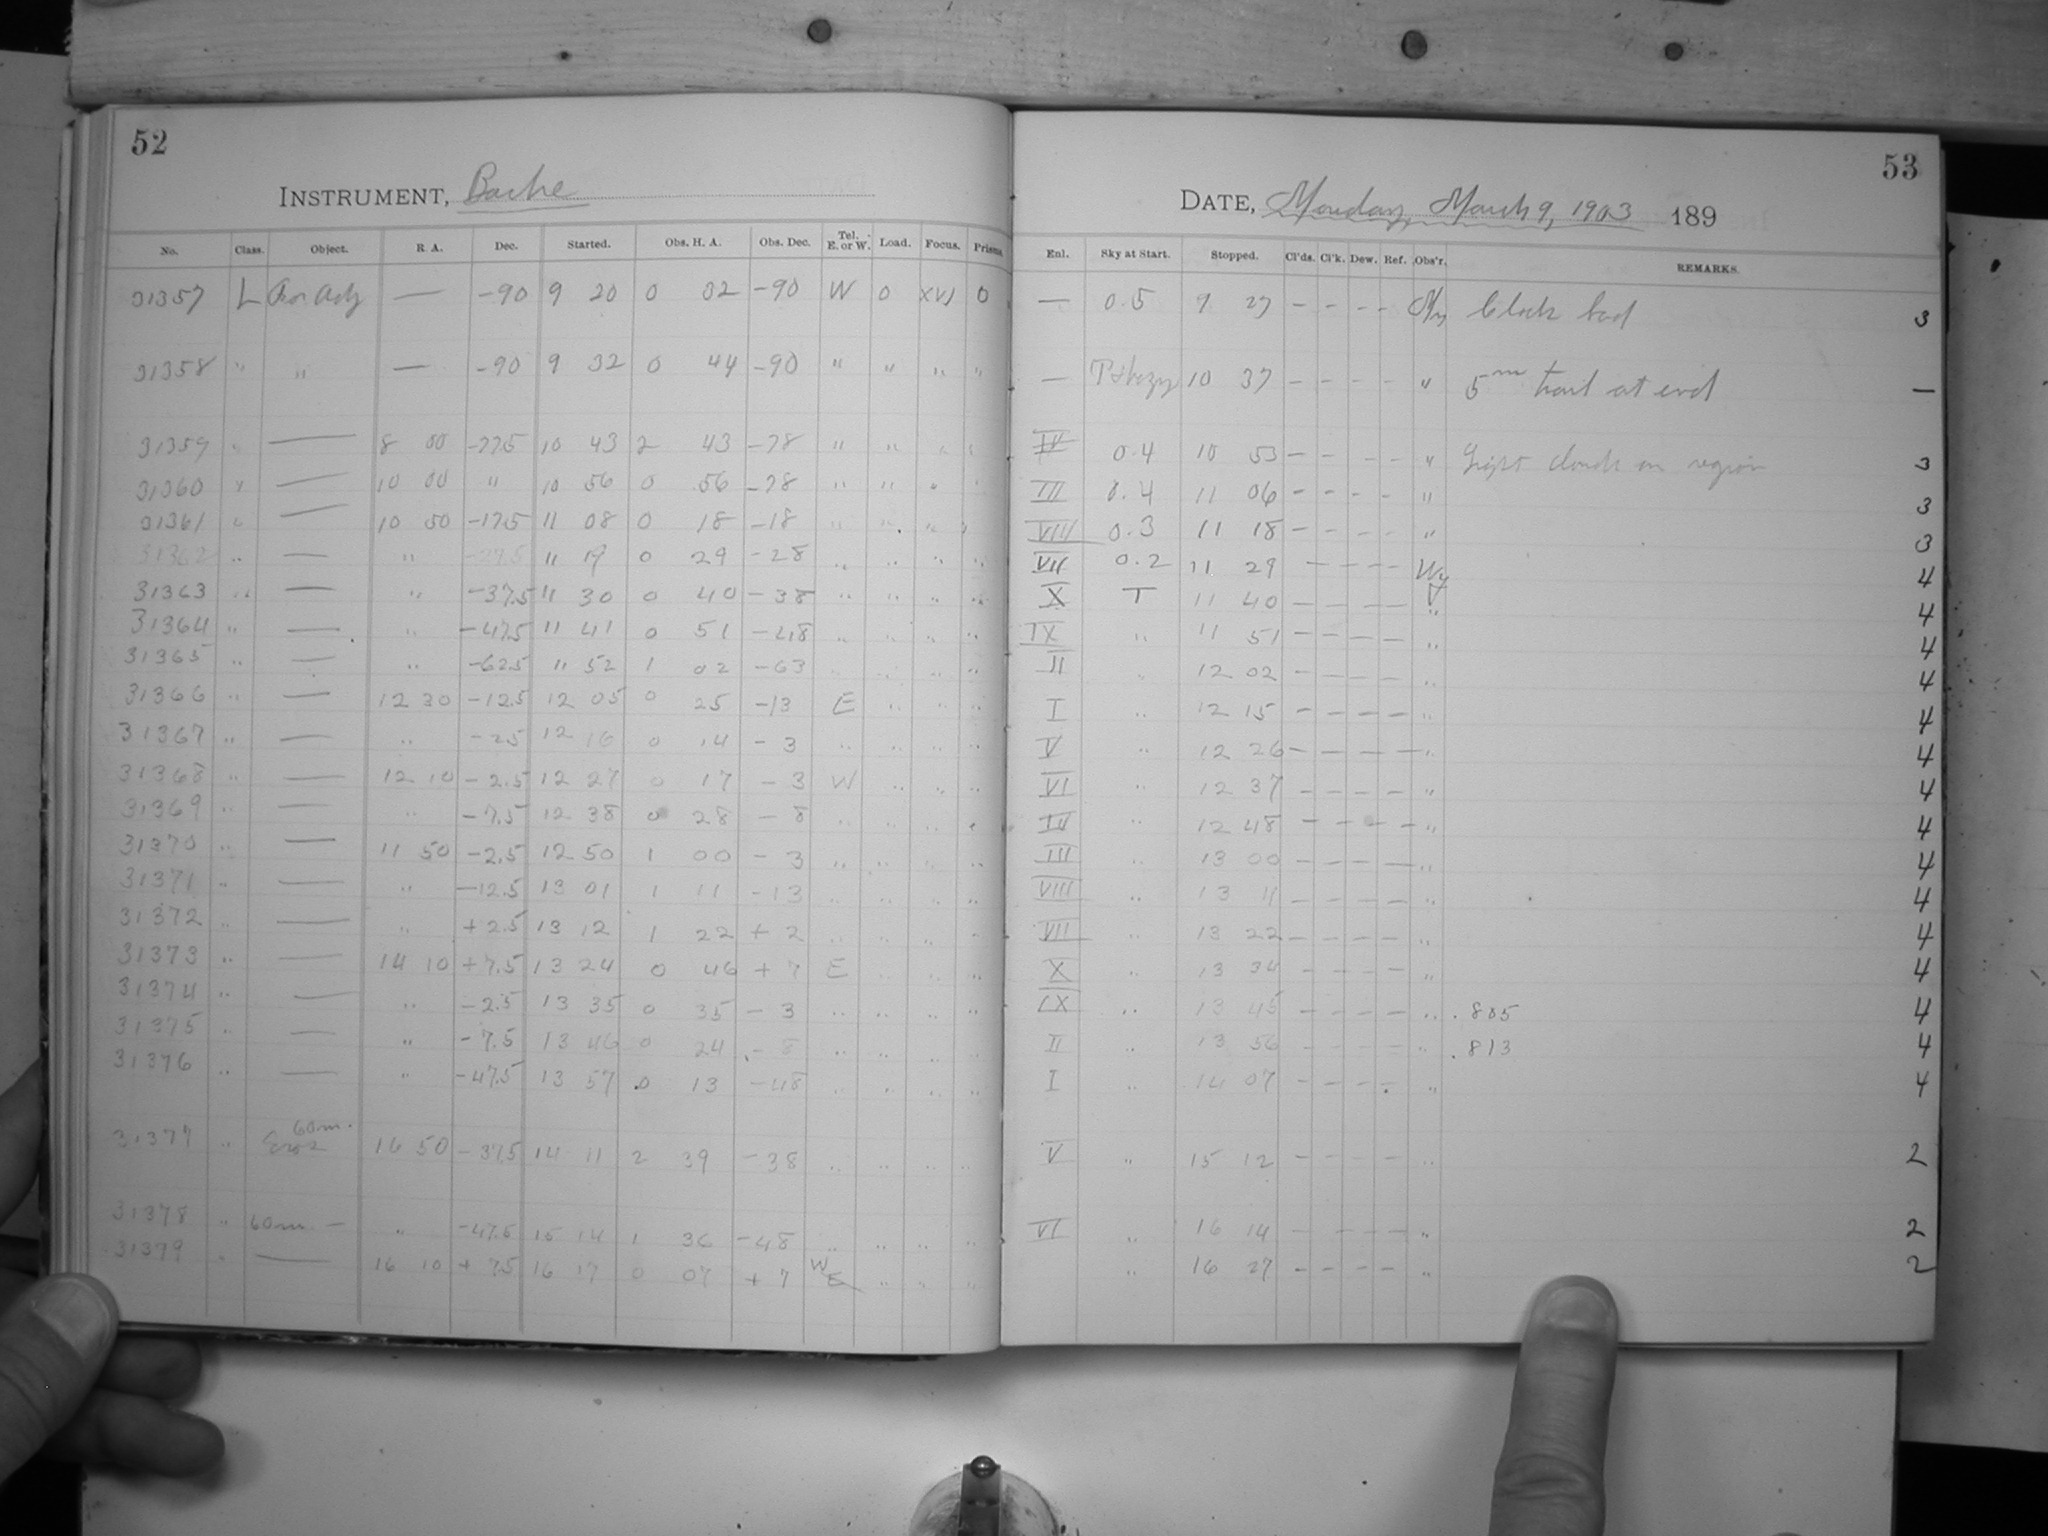 52
INSTRUMENT, Bache
No. Class. Object. R. A. Dec. Started. Obs. H. A. Obs. Dec. Tel. E. or W. Load. Focus. Prisms.
31357 L For Adj — -90 9 20 0 32 -90 W 0 XVI 0
31358 " " — -90 9 32 0 44 -90 " " " "
31359 " — 8 00 -77.5 10 43 2 43 -78 " " " "
31360 " — 10 00 " 10 56 0 56 -78 " " " "
31361 " — 10 50 -17.5 11 08 0 18 -18 " " " "
31362 " — " -27.5 11 19 0 29 -28 " " " "
31363 " — " -37.5 11 30 0 40 -38 " " " "
31364 " — " -47.5 11 41 0 51 -48 " " " "
31365 " — " -62.5 11 52 1 02 -63 " " " "
31366 " — 12 30 -12.5 12 05 0 25 -13 E " " "
31367 " — " -2.5 12 16 0 14 -3 " " " "
31368 " — 12 10 -2.5 12 27 0 17 -3 W " " "
31369 " — " -7.5 12 38 0 28 -8 " " " "
31370 " — 11 50 -2.5 12 50 1 00 -3 " " " "
31371 " — " -12.5 13 01 1 11 -13 " " " "
31372 " — " +2.5 13 12 1 22 +2 " " " "
31373 " — 14 10 +7.5 13 24 0 46 +7 E " " "
31374 " — " -2.5 13 35 0 35 -3 " " " "
31375 " — " -7.5 13 46 0 24 -8 " " " "
31376 " — " -47.5 13 57 0 13 -48 " " " "
31377 " Eros 60m. 16 50 -37.5 14 11 2 39 -38 " " " "
31378 " 60m. — " -47.5 15 14 1 36 -48 " " " "
31379 " — 16 10 +7.5 16 17 0 07 +7 W E " " "
53
DATE, Monday, March 9, 1903 189
Enl. Sky at Start. Stopped. Cl'ds. Cl'k. Dew. Ref. Obs'r. REMARKS.
— 0.5 9 27 – – – – Clock bad 3
— 10 37 – – – – " 5m trail at end —
IV 0.4 10 53 – – – – " Light clouds on region 3
III 0.4 11 06 – – – – " 3
VIII 0.3 11 18 – – – – " 3
VII 0.2 11 29 – – – – Wy 4
X T 11 40 – – – – " 4
IX " 11 51 – – – – " 4
II " 12 02 – – – – " 4
I " 12 15 – – – – " 4
V " 12 26 – – – – " 4
VI " 12 37 – – – – " 4
IV " 12 48 – – – – " 4
III " 13 00 – – – – " 4
VIII " 13 11 – – – – " 4
VII " 13 22 – – – – " 4
X " 13 34 – – – – " 4
IX " 13 45 – – – – " .805 4
II " 13 56 – – – – " .813 4
I " 14 07 – – – – " 4
V " 15 12 – – – – " 2
VI " 16 14 – – – – " 2
" 16 27 – – – – " 2